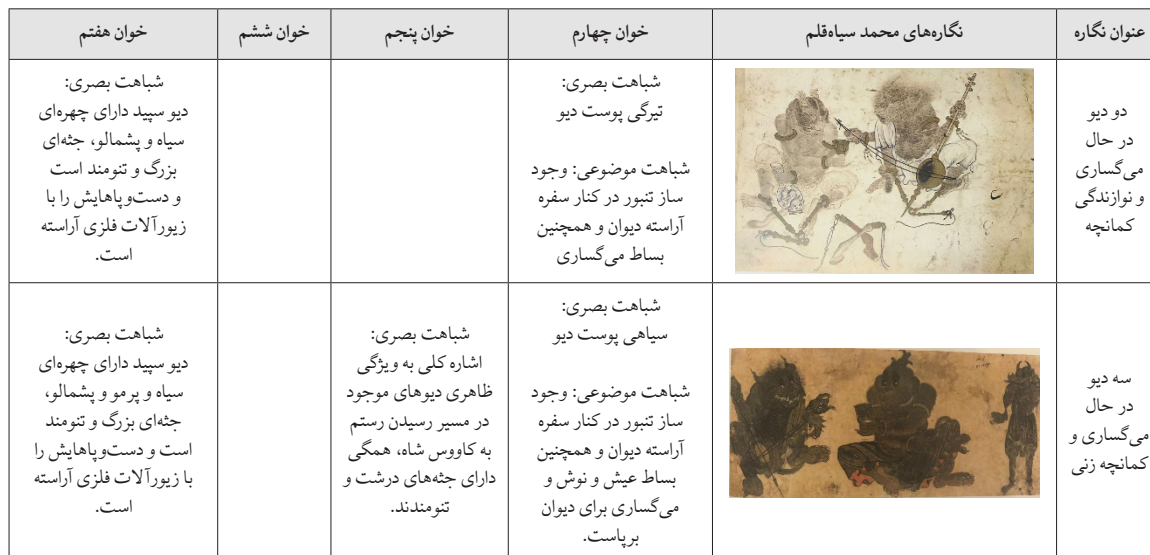 عنوان نگاره
نگاره‌های محمد سیاه‌قلم
خوان چهارم
خوان پنجم
خوان ششم
خوان هفتم
دو دیو
در حال
می‌گساری
و نوازندگی
کمانچه
شباهت بصری:
تیرگی پوست دیو
شباهت موضوعی: وجود
ساز تنبور در کنار سفره
آراسته دیوان و همچنین
بساط می‌گساری
شباهت بصری:
دیو سپید دارای چهره‌ای
سیاه و پشمالو، جثه‌ای
بزرگ و تنومند است
و دست‌وپاهایش را با
زیورآلات فلزی آراسته
است.
سه دیو
در حال
می‌گساری و
کمانچه زنی
شباهت بصری:
سیاهی پوست دیو
شباهت موضوعی: وجود
ساز تنبور در کنار سفره
آراسته دیوان و همچنین
بساط عیش و نوش و
می‌گساری برای دیوان
برپاست.
شباهت بصری:
اشاره کلی به ویژگی
ظاهری دیوهای موجود
در مسیر رسیدن رستم
به کاووس شاه، همگی
دارای جثه‌های درشت و
تنومندند.
شباهت بصری:
دیو سپید دارای چهره‌ای
سیاه و پرمو و پشمالو،
جثه‌ای بزرگ و تنومند
است و دست‌وپاهایش را
با زیورآلات فلزی آراسته
است.